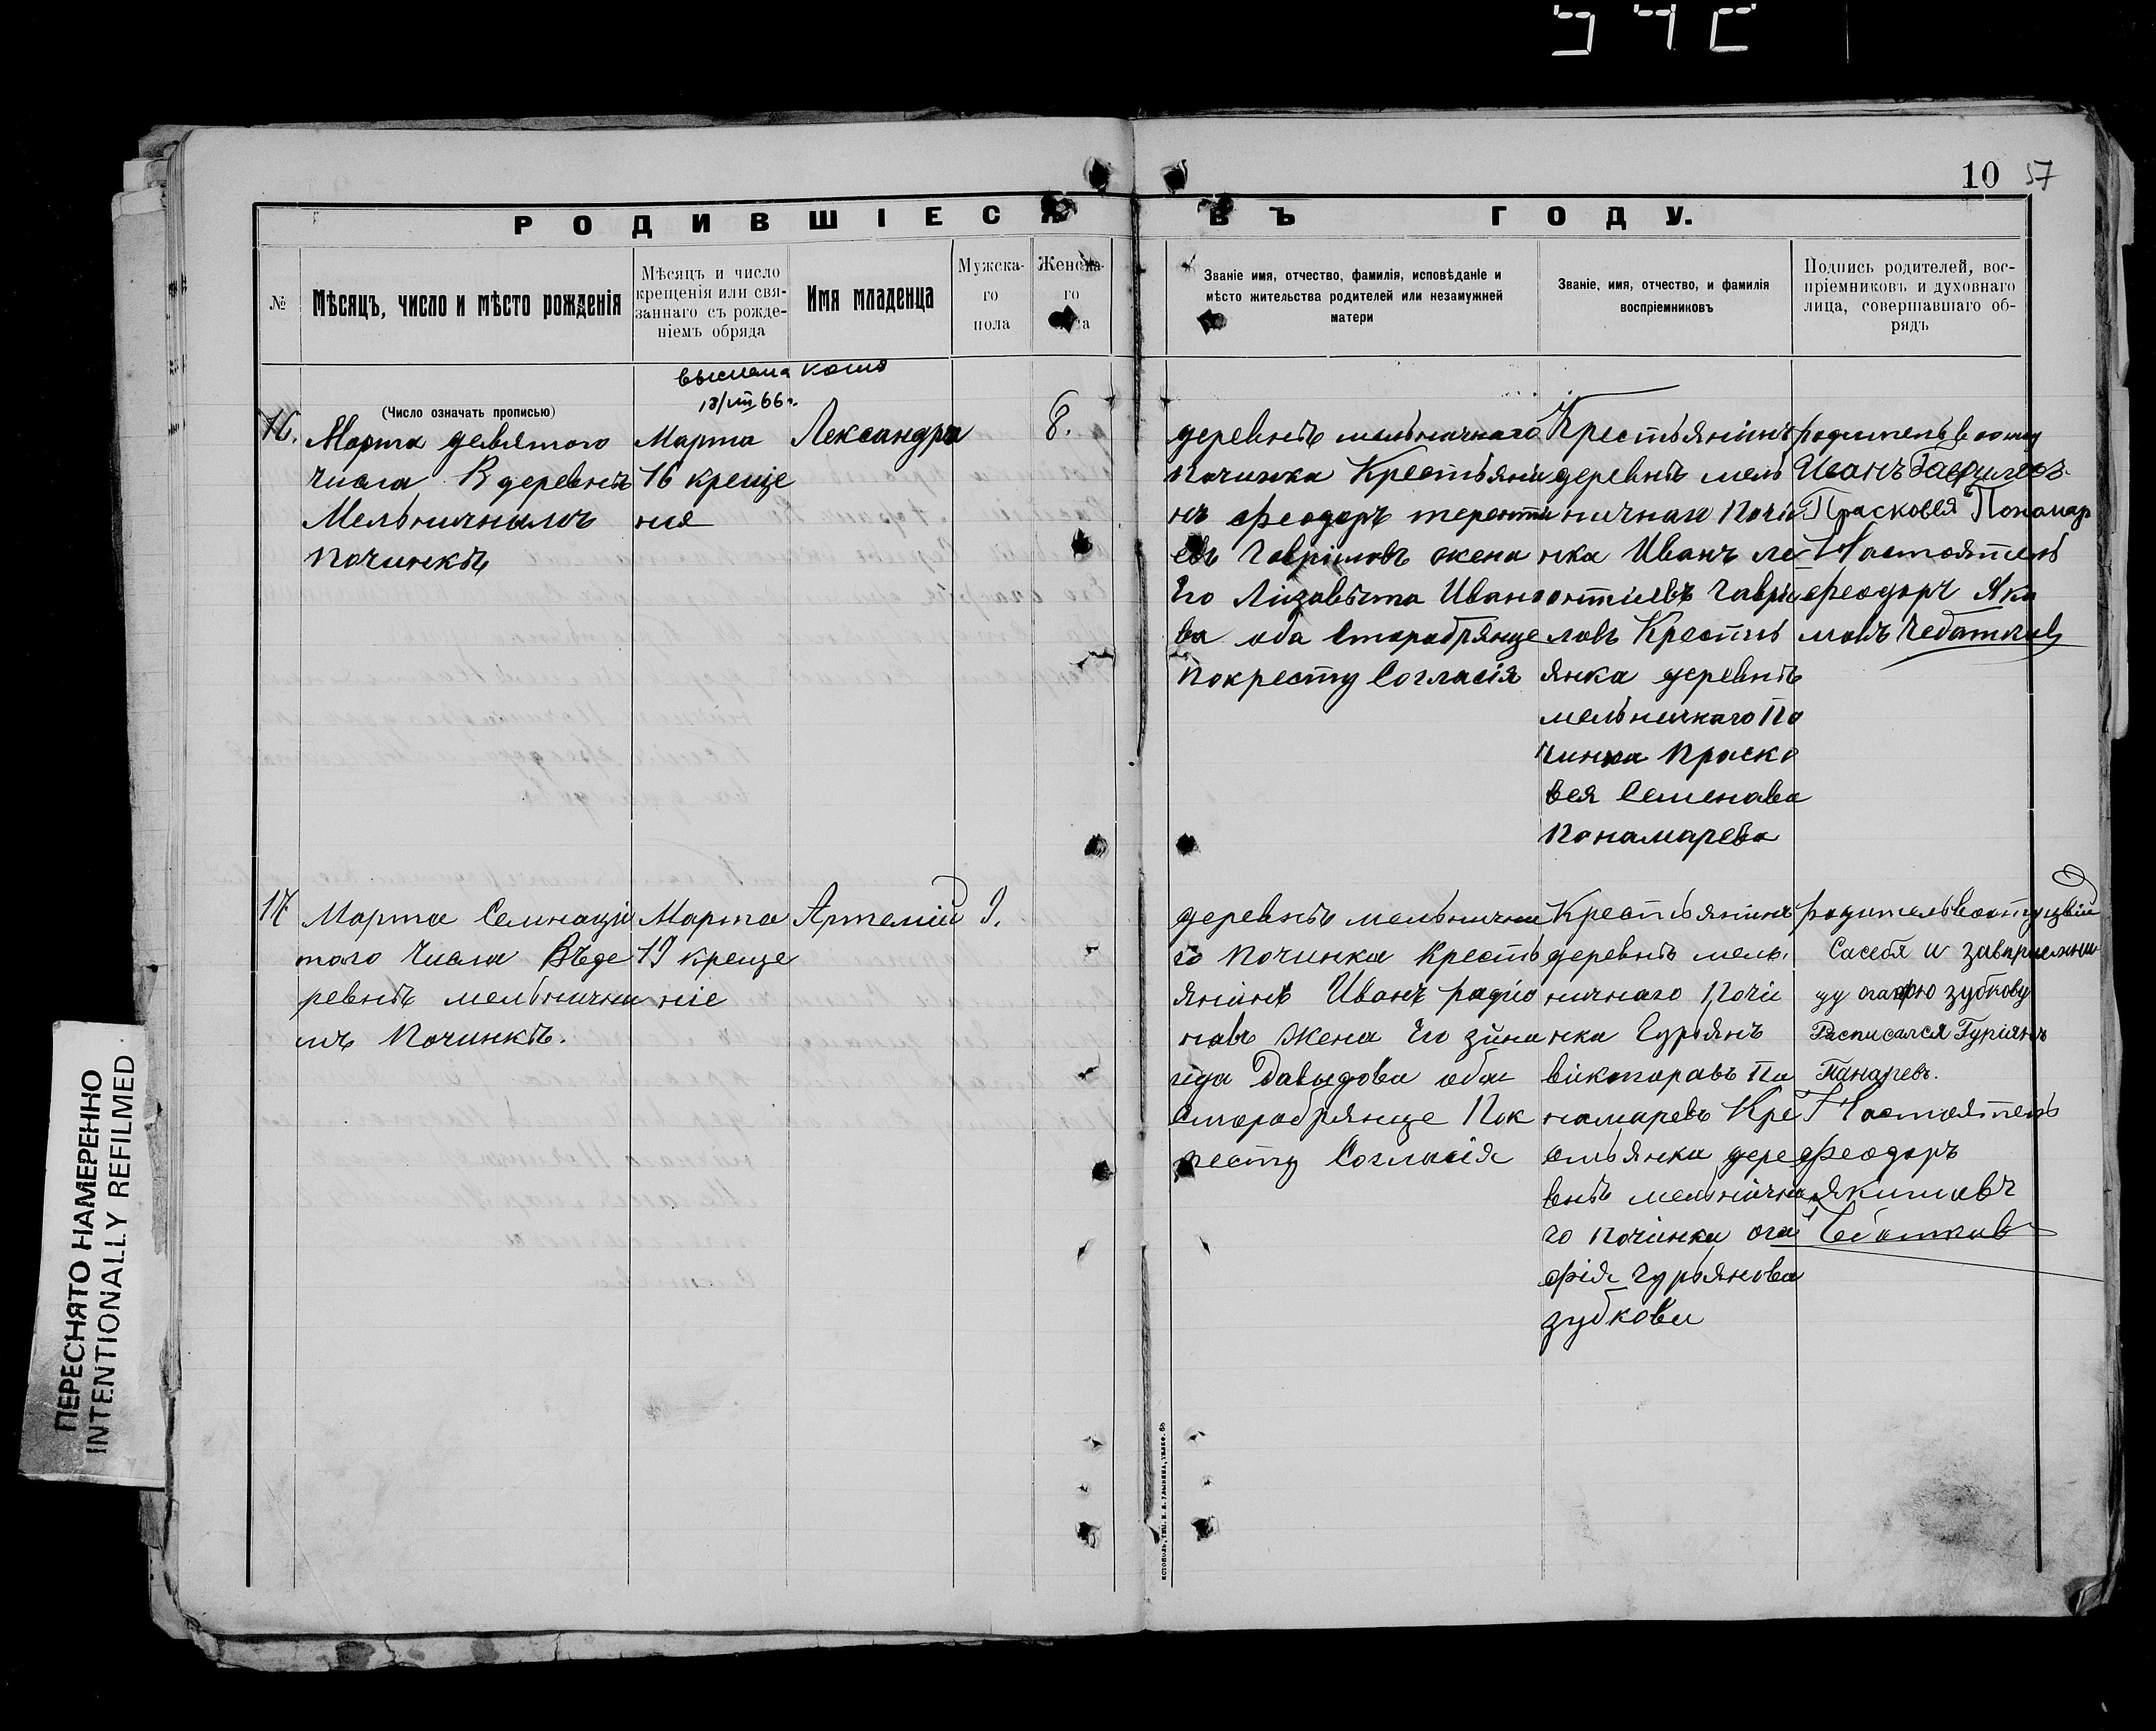 10 57
РОДИВШІЕСЯ ВЪ ГОДУ.
№
Мѣсяцъ, число и мѣсто рожденія
Мѣсяцъ и число
крещенія или свя-
заннаго съ рожде-
ніемъ обряда
Имя младенца
Мужска-
го
пола
Женска-
го
Званіе имя, отчество, фамилія, исповѣданіе и
мѣсто жительства родителей или незамужней
матери
Званіе, имя, отчество, и фамилія
воспріемниковъ
Подпись родителей, вос-
пріемниковъ и духовнаго
лица, совершавшаго об-
рядъ
выслана копия
18/VIII 66 г.
(Число означать прописью)
16.
Марта девятого
числа В деревнѣ
Мельничнымъ
починкѣ
Марта
16 креще
ния
Лександра
8.
деревнѣ мельничнаго
починка Крестьяни
нъ феодоръ теренти
евъ Гаврiловъ жена
Его Лизавѣта Ивано
ва оба Старобрянце
покресту Согласія
Крестьянiнъ
деревнѣ мель
ничнаго почи
нка Иванъ ле
онтiевъ Гаврi
ловъ Крестьь
янка деревнѣ
мельничнаго По
чинка Праско
вея Семенава
Понамарева
родитель
Иванъ Гаврилов
Прасковея Понамар
Настоятель
феодоръ Яки
мовъ Чебатков
17
Марта Семнацi
того Числа Въде
ревнѣ мельнични
мъ Починкѣ.
Марта
19 креще
ніе
Артемій
9.
деревнѣ мельнични
го починка Кресть
янiнъ Иванъ радiо
навъ Жена Его зiна
ида Давыдова обаи
Старобрянце Пок
ресту Согласія
Крестьянiнъ
деревнѣ мель.
ничнаго Почи
нка Гурьянъ
викторавъ По
намаревъ Кре
стьянка дере
внѣ мельнична
го починка ога
фiя гурьянова
зубкова
родитель
Сасебя и
цу огафю зубкову
Расписался Гуріянъ
Панаревъ.
Настоятель
феодоръ
Якимовъ
Чебатков
ПЕРЕСНЯТО НАМЕРЕННО
INTENTIONALLY REFILMED